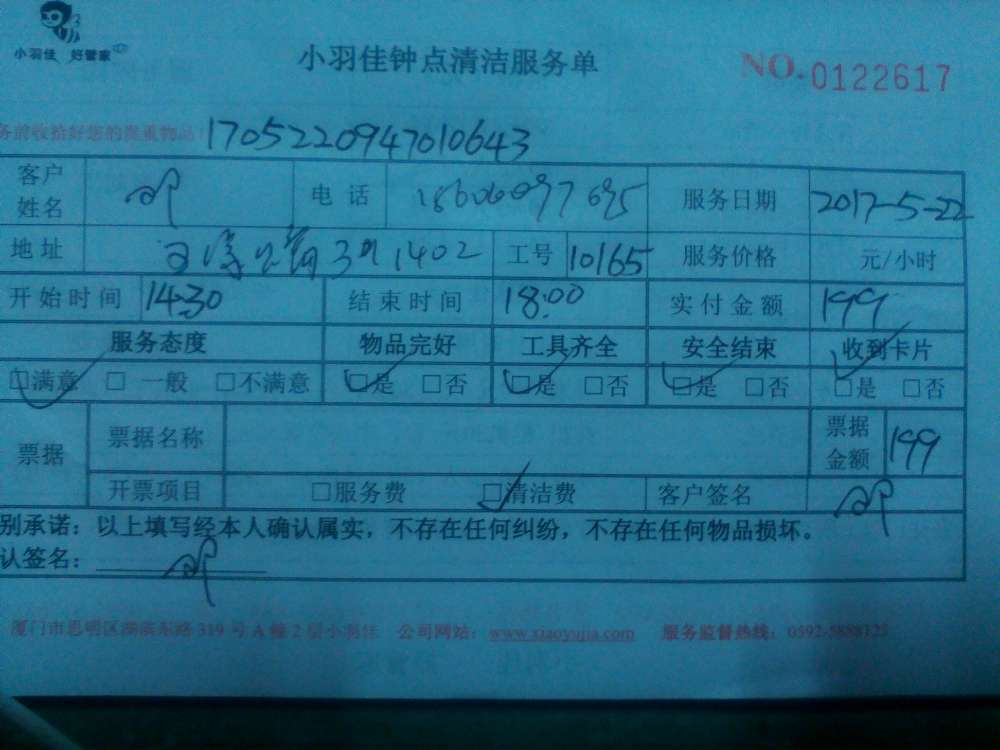 小羽佳 好管家
小羽佳钟点清洁服务单
NO.0122617
务前收拾好您的贵重物品
1705220947010643
客户姓名 电话 服务日期 2017-5-22
地址 3 1402 工号 10165 服务价格 元/小时
开始时间 14:30 结束时间 18:00 实付金额 199
服务态度 物品完好 工具齐全 安全结束 收到卡片
□满意 □一般 □不满意 □是 □否 □是 □否 □是 □否 □是 □否
票据 票据名称 票据金额 199
开票项目 □服务费 □清洁费 客户签名
别承诺：以上填写经本人确认属实，不存在任何纠纷，不存在任何物品损坏。
认签名：
厦门市思明区湖滨东路 319 号 A 幢 2 层小羽佳 公司网站：www.xiaoyujia.com 服务监督热线：